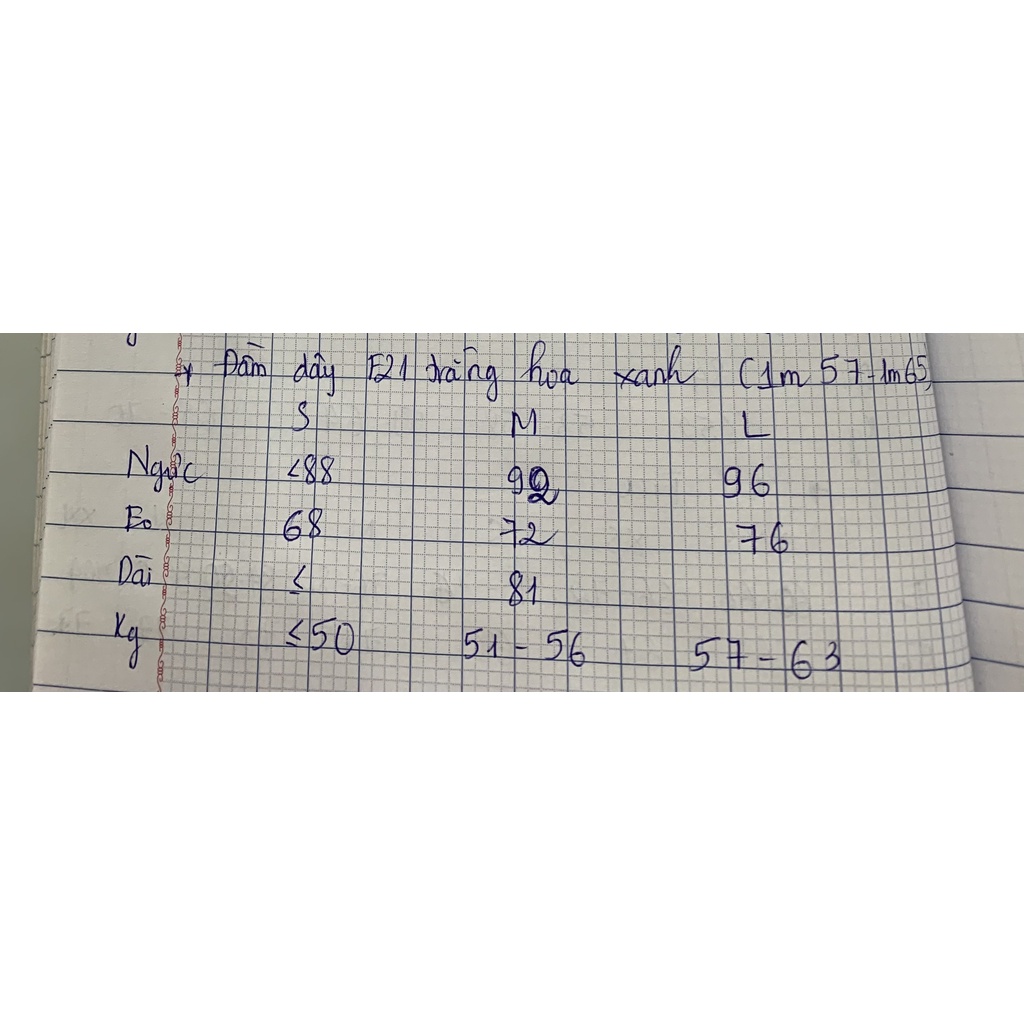 + Đầm dây E21 trắng hoa xanh (1m57-1m65)
S M L
Ngực <88 92 96
Eo 68 72 76
Dài < 81
Kg ≤50 51 - 56 57 - 63